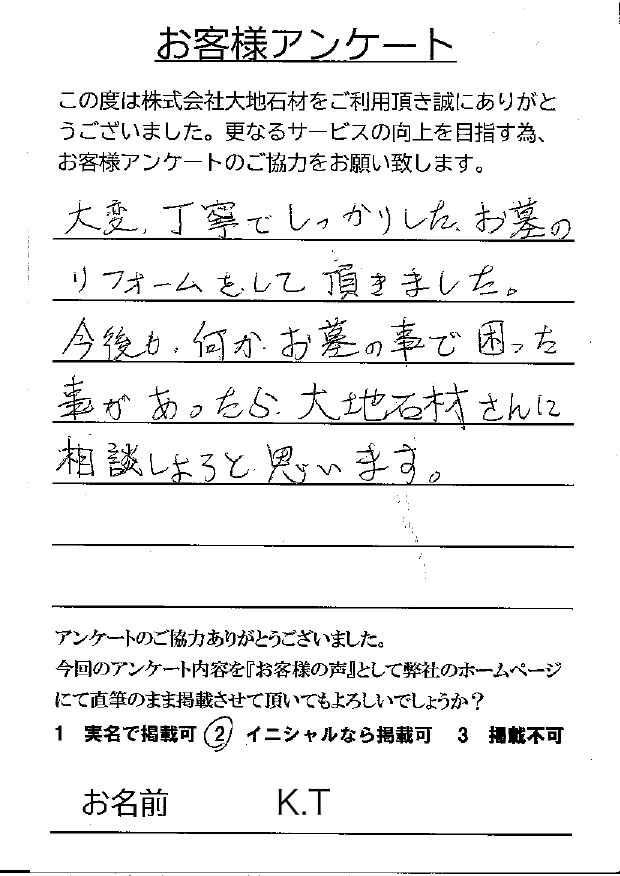 お客様アンケート
この度は株式会社大地石材をご利用頂き誠にありがと
うございました。更なるサービスの向上を目指す為、
お客様アンケートのご協力をお願い致します。
大変、丁寧でしっかりした、お墓の
リフォームをして頂きました。
今後も、何か、お墓の事で困った
事があったら、大地石材さんに
相談しようと思います。
アンケートのご協力ありがとうございました。
今回のアンケート内容を『お客様の声』として弊社のホームページ
にて直筆のまま掲載させて頂いてもよろしいでしょうか？
1 実名で掲載可 2 イニシャルなら掲載可 3 掲載不可
お名前 K.T